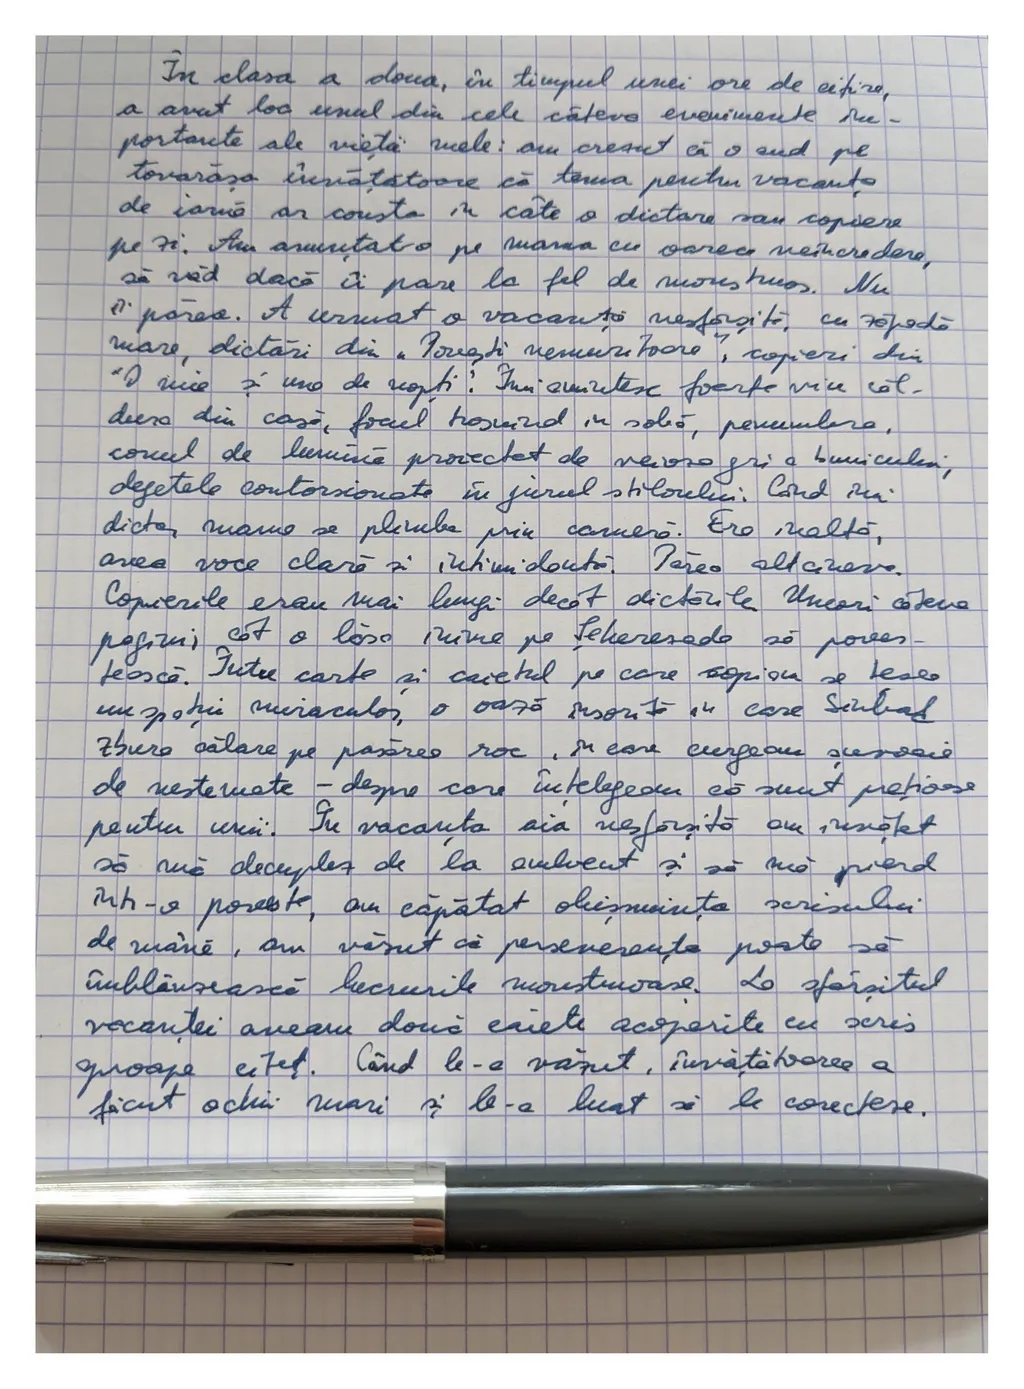 În clasa a doua, în timpul unei ore de citire,
a avut loc unul din cele câteva evenimente im-
portante ale vieții mele: am crezut că o aud pe
tovarășa învățătoare că tema pentru vacanța
de iarnă ar consta în câte o dictare sau copiere
pe zi. Am anunțat-o pe mama cu oarece neîncredere,
să văd dacă îi pare la fel de monstruos. Nu
îi părea. A urmat o vacanță nesfârșită, cu zăpadă
mare, dictări din „Povești nemuritoare", copieri din
"O mie și una de nopți". Îmi amintesc foarte viu căl-
dura din casă, focul trosnind în sobă, penumbra,
conul de lumină proiectat de veioza gri a bunicului,
degetele contorsionate în jurul stiloului. Când îmi
dicta, mama se plimba prin cameră. Era înaltă,
avea voce clară și intimidantă. Părea altcineva.
Copierile erau mai lungi decât dictările. Uneori câteva
pagini, cât o lăsa inima pe Șeherezada să poves-
tească. Între carte și caietul pe care copiam se țesea
un spațiu miraculos, o oază însorită în care Sinbad
zbura călare pe pasărea roc, în care curgeau șuvoaie
de nestemate – despre care înțelegeam că sunt prețioase
pentru unii. În vacanța aia nesfârșită am învățat
să mă decuplez de la ambient și să mă pierd
într-o poveste, am căpătat obișnuința scrisului
de mână, am văzut că perseverența poate să
îmblânzească lucrurile monstruoase. La sfârșitul
vacanței aveam două caiete acoperite cu scris
aproape citeț. Când le-a văzut, învățătoarea a
făcut ochii mari și le-a luat să le corecteze.